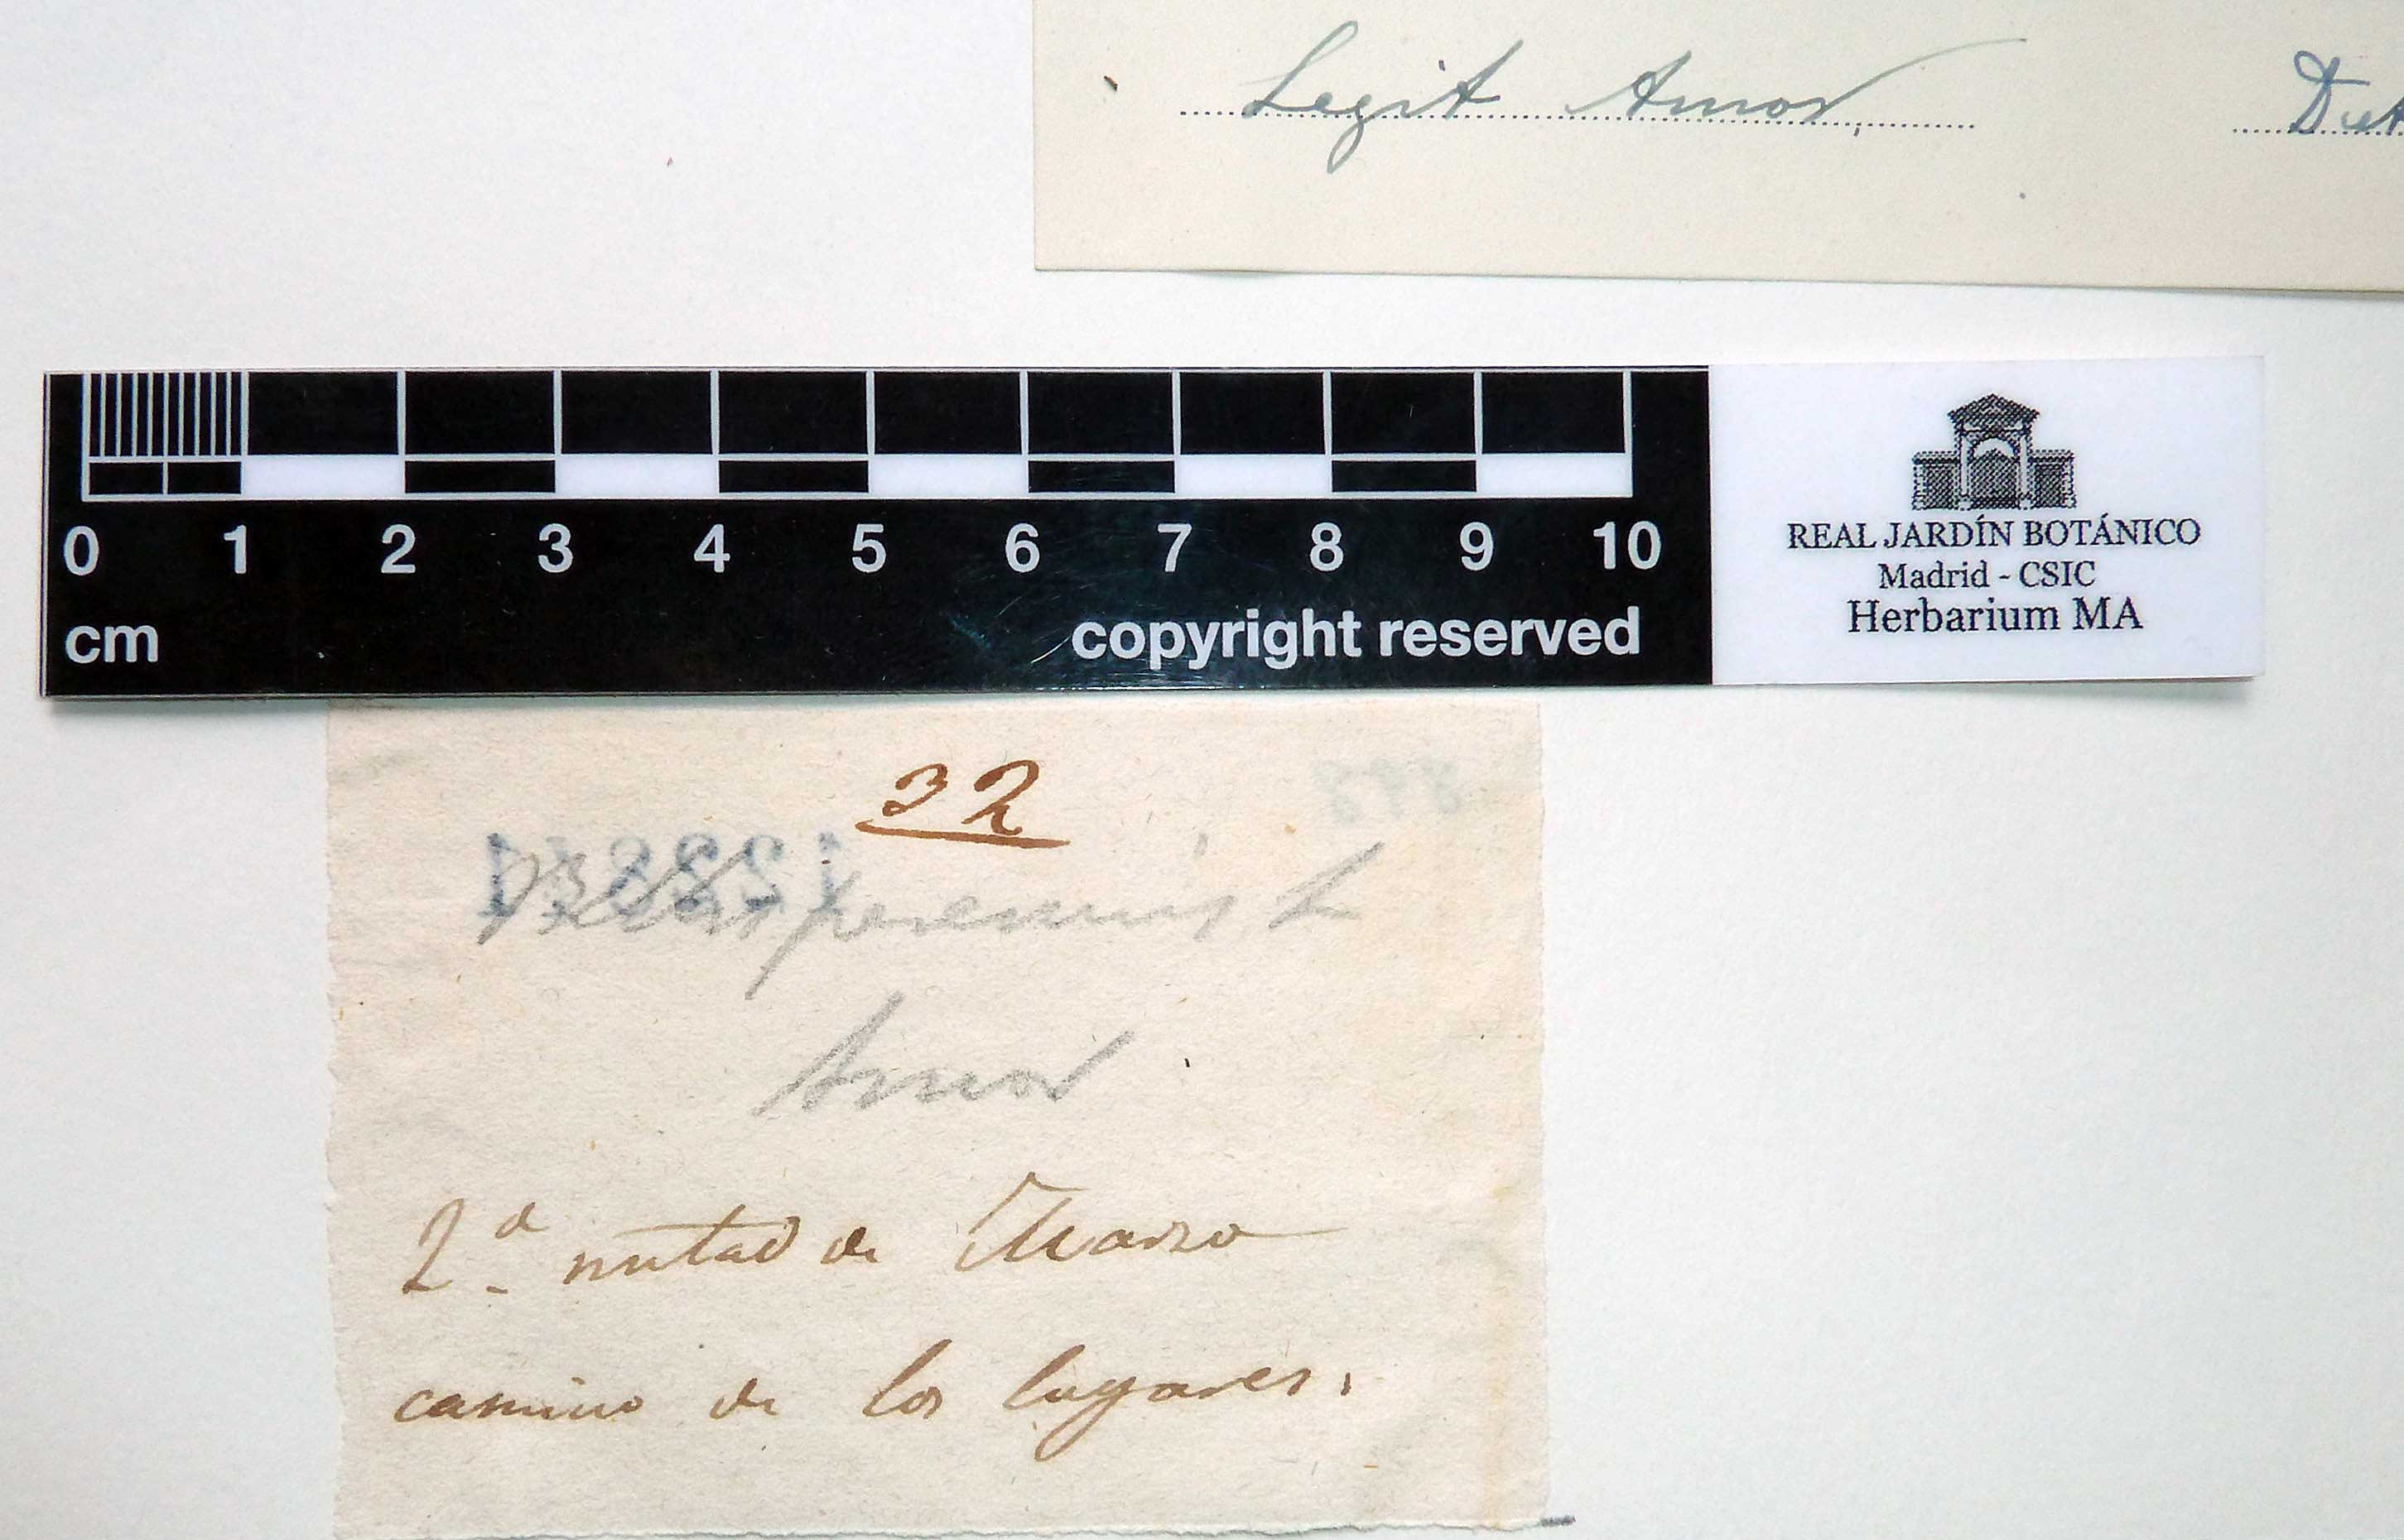 Legit Amor,
0 1 2 3 4 5 6 7 8 9 10
cm
copyright reserved
REAL JARDÍN BOTÁNICO
Madrid - CSIC
Herbarium MA
32
perennis L
Amor
2ª mitad de Marzo
camino de los lugares.